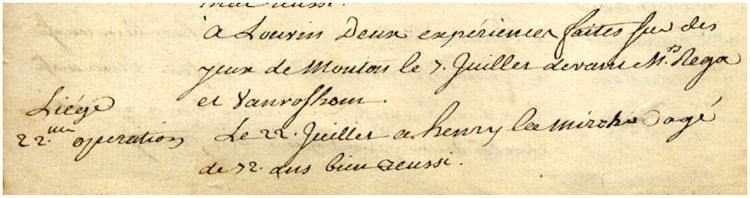 mal reussi.
a Louvin Deux experiences faites sur des
yeux de Mouton le 7. Juillet devant Mrs. Rega
et Vanrosshom.
Liége
22.me operation
Le 22. Juillet a henry la mirche agé
de 72. ans bien reussi.